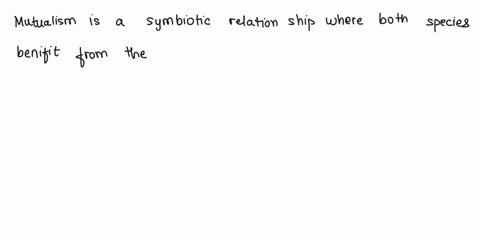 Mutualism is a symbiotic relation ship where both species
benifit from the